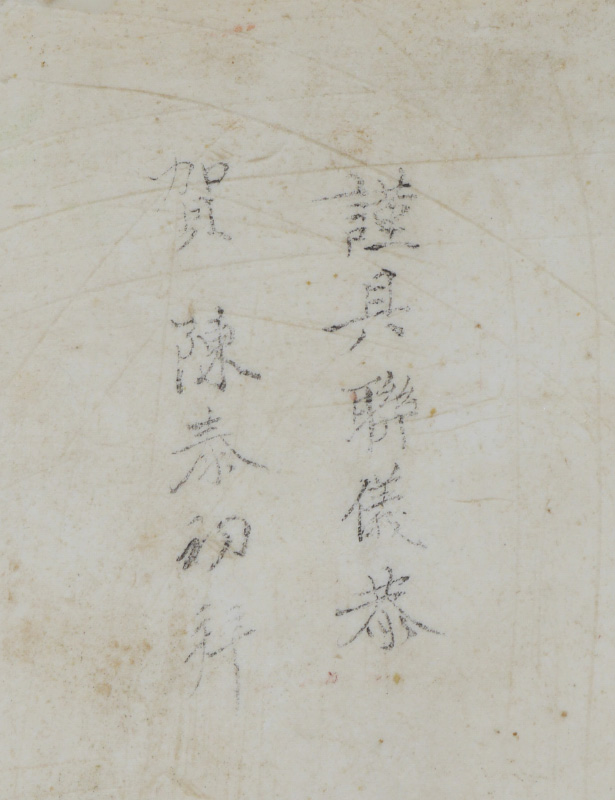 謹具聯儀恭
賀 陳泰初拜